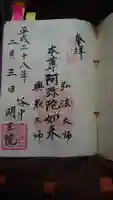 奉拝
弘法大師
本尊阿弥陀如来
興教大師
平成二十八年
二月三日
谷中
明王院